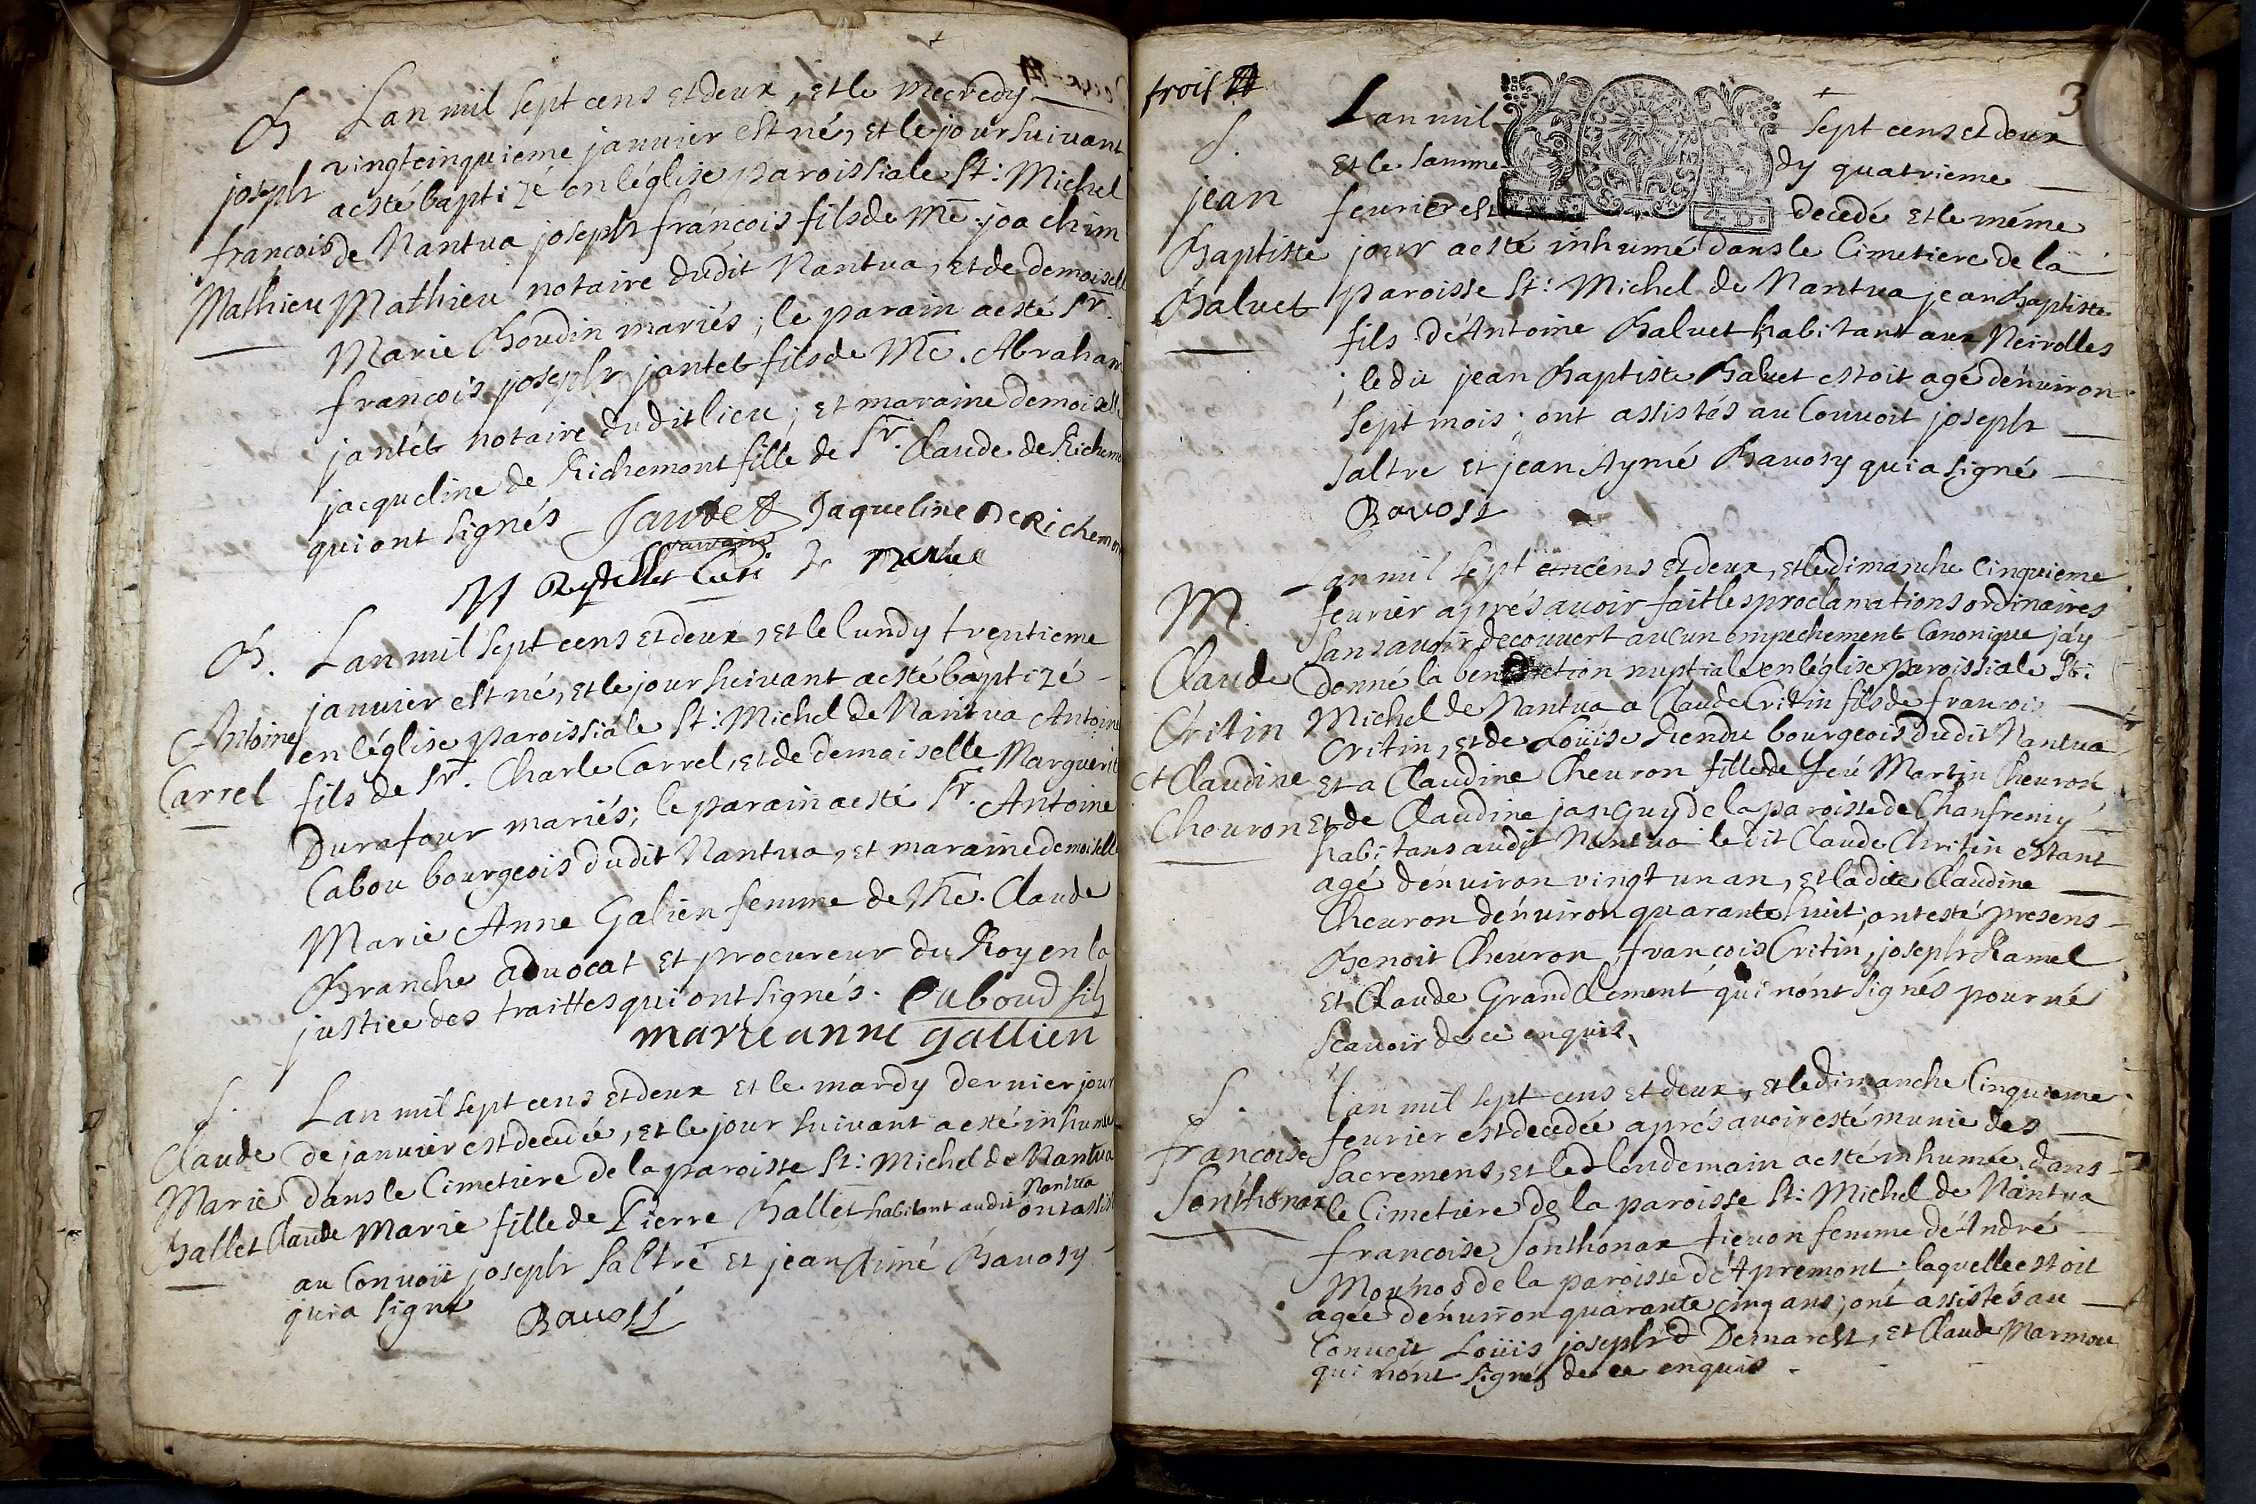 B
Lan mil sept cens et deux, et le mecredy
vingtcinquieme janvier est né, et le jour suivant
joseph
a esté baptizé en léglise paroissiale St: Michel
francois
de Nantua joseph francois fils de Me. joachim
Mathieu
Mathieu notaire dudit Nantua, et de demoiselle
Marie Boudin mariés; le parain a esté Sr.
francois joseph jantet fils de Me. Abraham
jantét notaire dudit lieu; et maraine demoiselle
jacqueline de Richemont fille de Sr. Claude de Richemo
qui ont signés Jantet Jaqueline De Richemon
Curé
B.
Lan mil sept cens et deux, et le lundy trentieme
janvier est né, et le jour suivant a esté baptizé
Antoine
en léglise paroissiale St: Michel de Nantua Antoine
Carrel
fils de Sr. Charle Carrel, et de demoiselle Marguerit
Durafour mariés; le parain a esté Sr. Antoine
Cabou bourgeois dudit Nantua, et maraine demoiselle
Marie Anne Galien femme de Me. Claude
Branche advocat et procureur du Roy en la
justice des traittes qui ont signés. Caboud fils
marie anne gallien
S.
Lan mil sept cens et deux et le mardy dernier jour
Claude
de janvier est decedée, et le jour suivant a esté inhumée
Marie
dans le Cimetiere de la paroisse St: Michel de Nantua
Ballet
Claude Marie fille de Pierre Ballet habitant audit Nantua ont assist
au Convoit joseph Saltre et jean Aimé Bavosy
qui a signé
Bavosi
trois
3
S.
Lan mil sept cens et deux
et le samme dy quatrieme
jean
fevrier est decedé et le méme
Baptiste
jour a esté inhumé dans le Cimetiere de la
Baluet
paroisse St: Michel de Nantua jean Baptiste
fils d'Antoine Baluet habitant aux Neirolles
; ledit jean Baptiste Baluet estoit agé dénviron
sept mois; ont assistés au Convoit joseph
saltre et jean Aymé Bavosy qui a signé
Bavosi
M.
Lan mil sept cens et deux, et le dimanche Cinquieme
fevrier aprés avoir fait les proclamations ordinaires
sans avoir decouvert aucun empechement Canonique j'ay
Claude
donné la benediction nuptiale en léglise paroissiale St:
Critin
Michel de Nantua a Claude Critin fils de francois
Critin, et de Loüise Rendu bourgeois dudit Nantua
et Claudine
et a Claudine Chevron fille de feu Martin Chevron,
Chevron
et de Claudine janguy de la paroisse de Chanfremy
habitans audit Nantua ledit Claude Chritin estant
agé dénviron vingt un an, et ladite Claudine
Chevron dénviron quarante huit; ont esté presens
Benoit Chevron, francois Critin, joseph Ramel
et Claude Grand Clement qui nónt signés pour né
scavoir de ce enquis.
S.
Lan mil sept cens et deux, et le dimanche Cinquieme
fevrier est decedée aprés avoir esté munie des
francoise
sacremens, et le lendemain a esté inhumée dans
Sonthonax
le Cimetiere de la paroisse St: Michel de Nantua
francoise Sonthonax tievon femme d'André
de la paroisse d'Apremont laquelle estoit
agée dénviron quarante cinq ans; ont assistés au
Convoit Loüis joseph, et Claude Marmou
qui nónt signés de ce enquis.